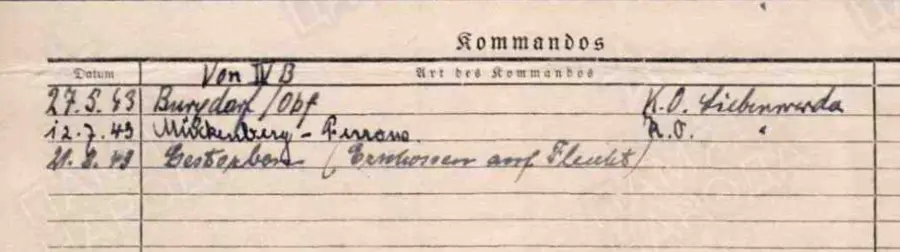 Kommandos
Datum Von IV B Art des Kommandos
27.5.43 Burgdorf/Opf K.O. Liebenwerda
12.7.43 Mückenberg - K.O. "
21.8.43 Gestorben (Erschossen auf Flucht)